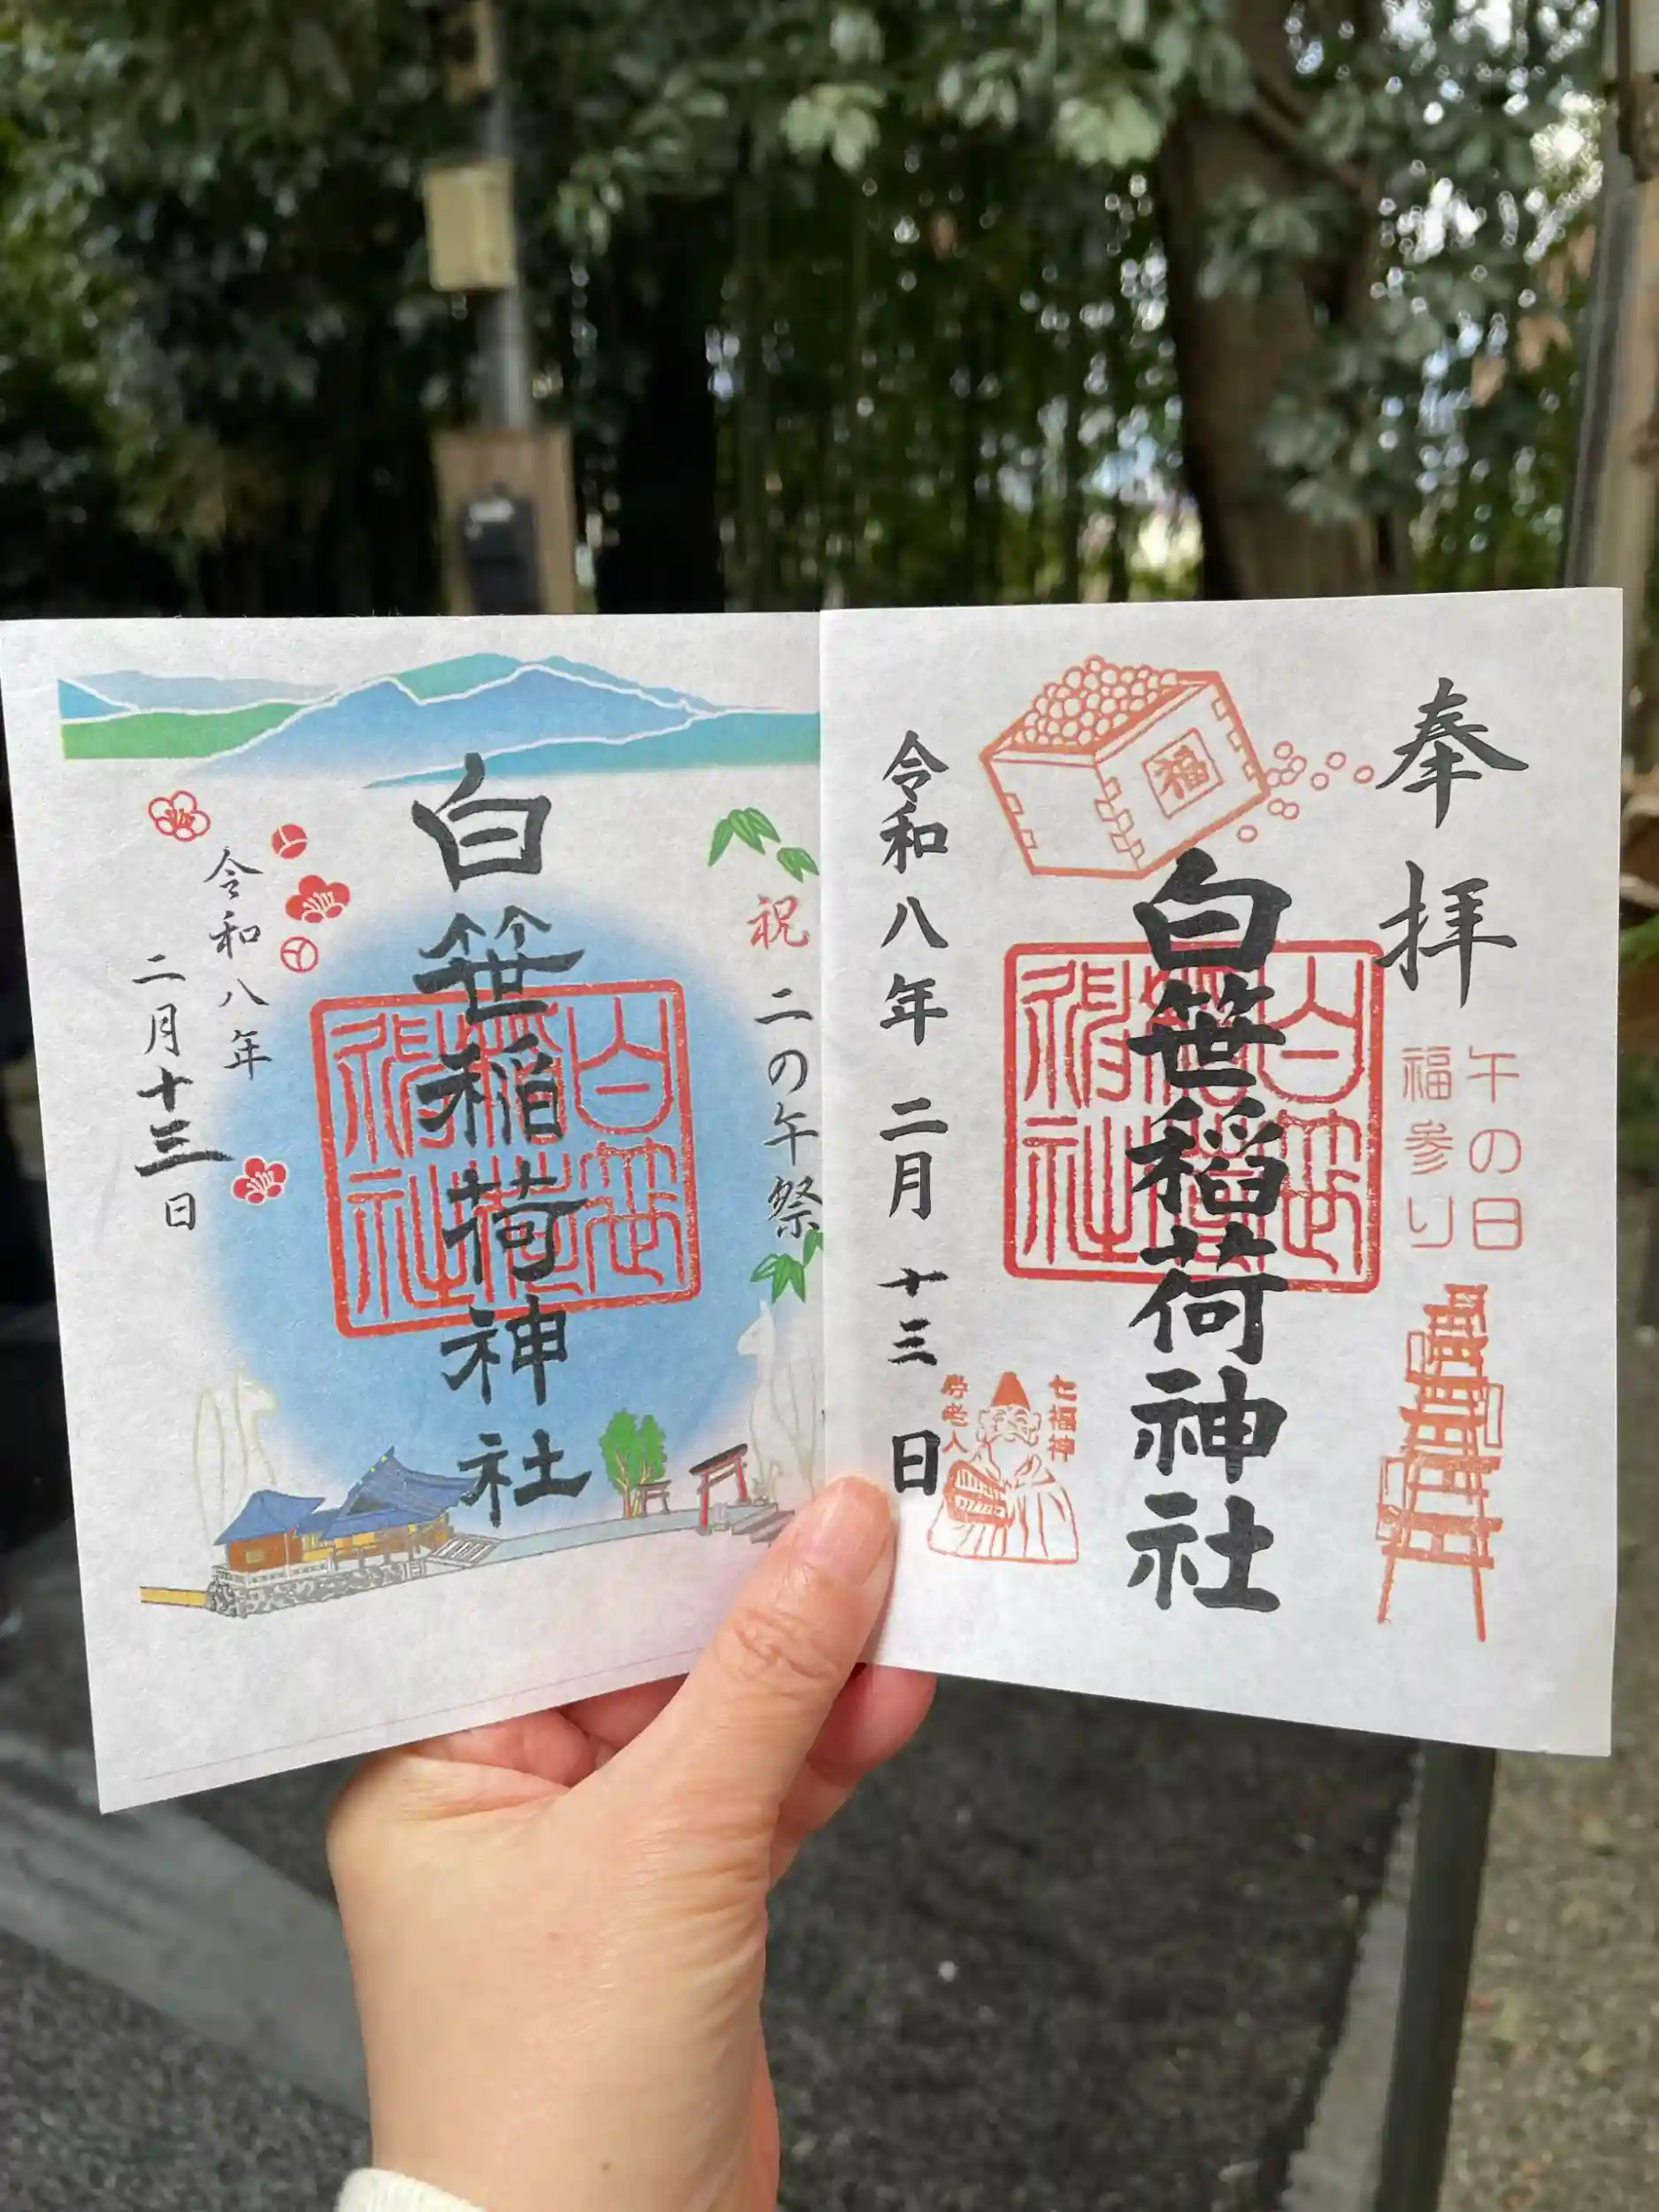 奉拝
午の日
福参り
福
白笹稲荷神社
白笹稲荷神社
七福神
寿老人
令和八年 二月 十三日
祝 二の午祭
白笹稲荷神社
白笹稲荷神社
令和八年
二月十三日